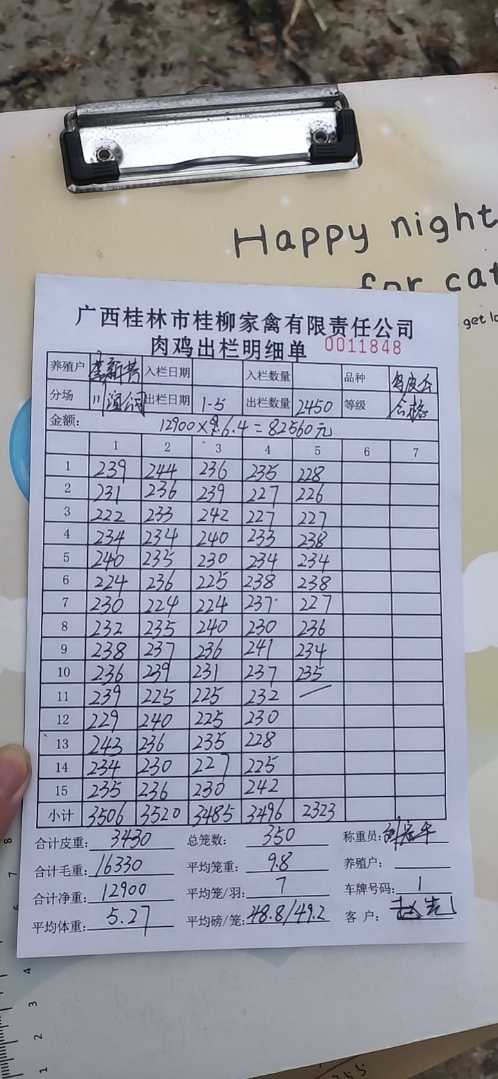 Happy night
for cat
get lo
广西桂林市桂柳家禽有限责任公司
肉鸡出栏明细单 0011848
养殖户 入栏日期 入栏数量 品种
分场 出栏日期 1-5 出栏数量 2450 等级 合格
金额: 12900×6.4=82560元
1 2 3 4 5 6 7
1 239 244 236 235 228
2 231 236 239 227 226
3 222 233 242 227 227
4 234 234 240 233 238
5 240 235 230 234 234
6 224 236 225 238 238
7 230 224 224 237 227
8 232 235 240 230 236
9 238 237 236 241 234
10 236 239 231 237 235
11 239 225 225 232
12 229 240 225 230
13 243 236 235 228
14 234 230 227 225
15 235 236 230 242
小计 3506 3520 3485 3496 2323
合计皮重: 3430 总笼数: 350 称重员:
合计毛重: 16330 平均笼重: 9.8 养殖户:
合计净重: 12900 平均笼/羽: 7 车牌号码: 1
平均体重: 5.27 平均磅/笼: 48.8/49.2 客户: